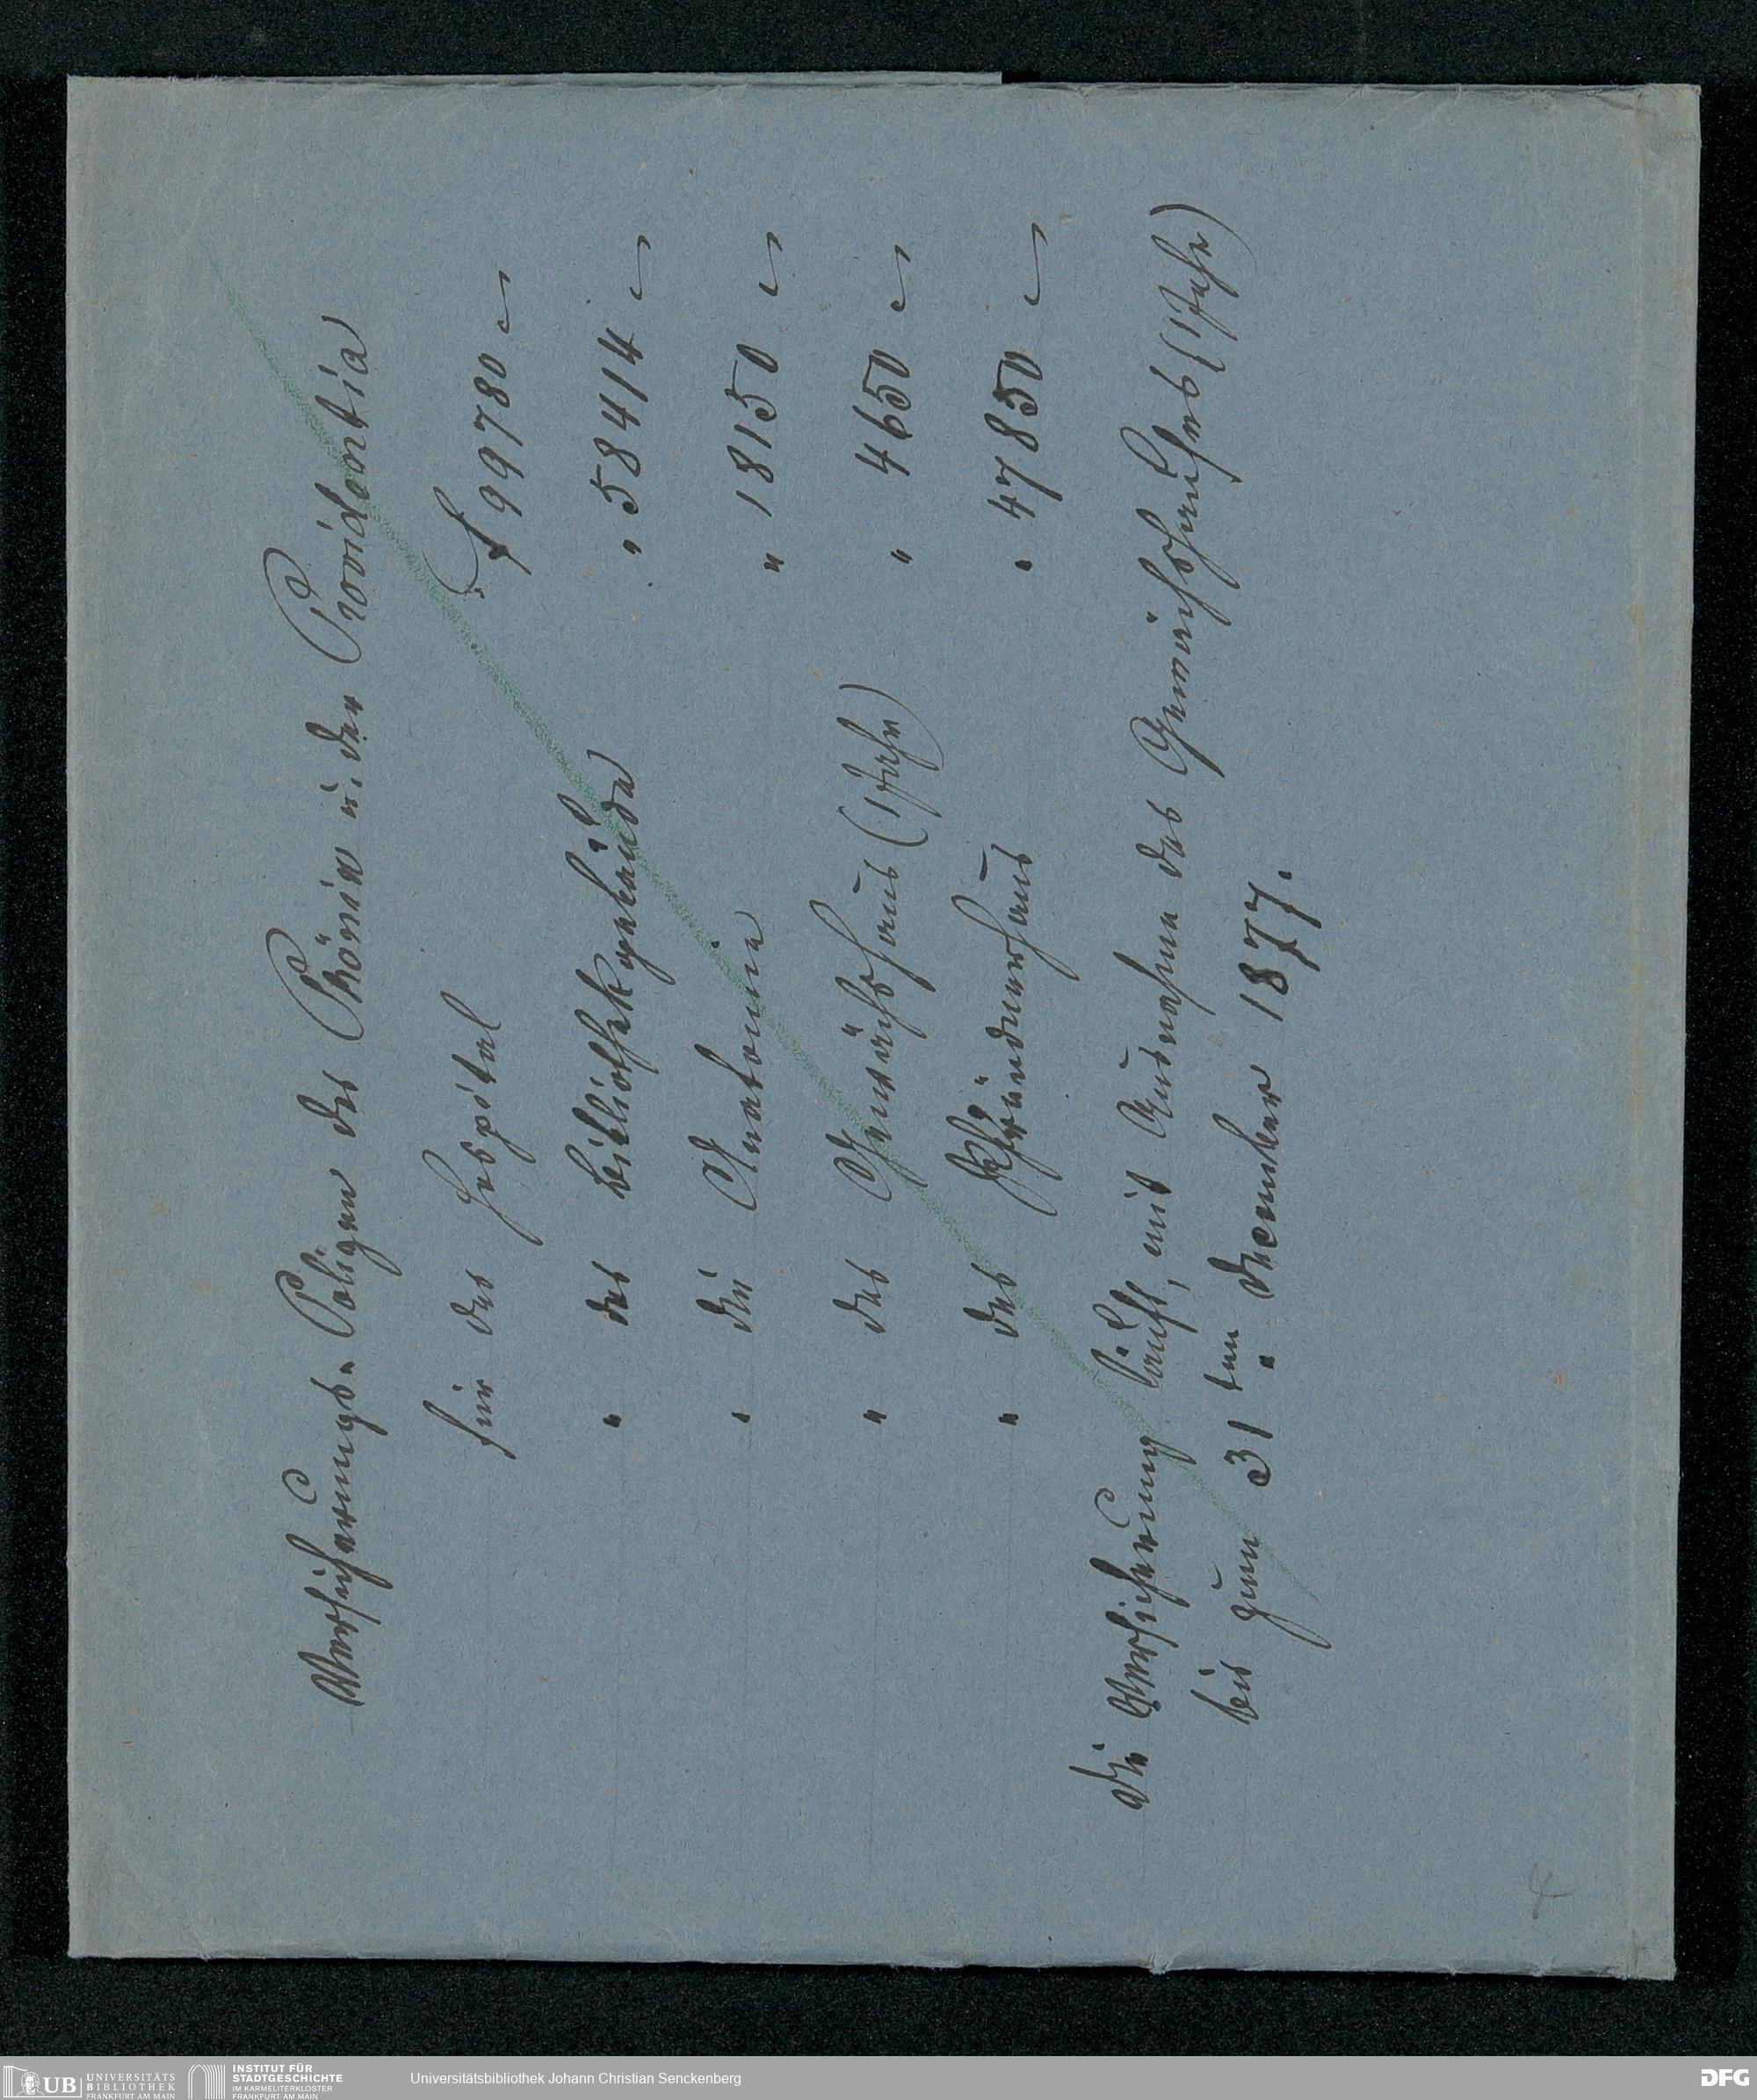 Versicherungs-Polizen des Phönix u. der Providentia
für das Hospital f 99780 —
" das Bibliothekgebäude " 58414 —
" die Anatomie " 18150 —
" das Gewächshaus (1 Jahr) " 4650 —
" das Pfründnerhaus " 47850 —
Die Versicherung läuft, mit Ausnahme des Gewächshauses (1 Jahr)
bis zum 31ten December 1877.
4
UB UNIVERSITÄTS
BIBLIOTHEK
FRANKFURT AM MAIN
INSTITUT FÜR
STADTGESCHICHTE
IM KARMELITERKLOSTER
FRANKFURT AM MAIN
Universitätsbibliothek Johann Christian Senckenberg
DFG